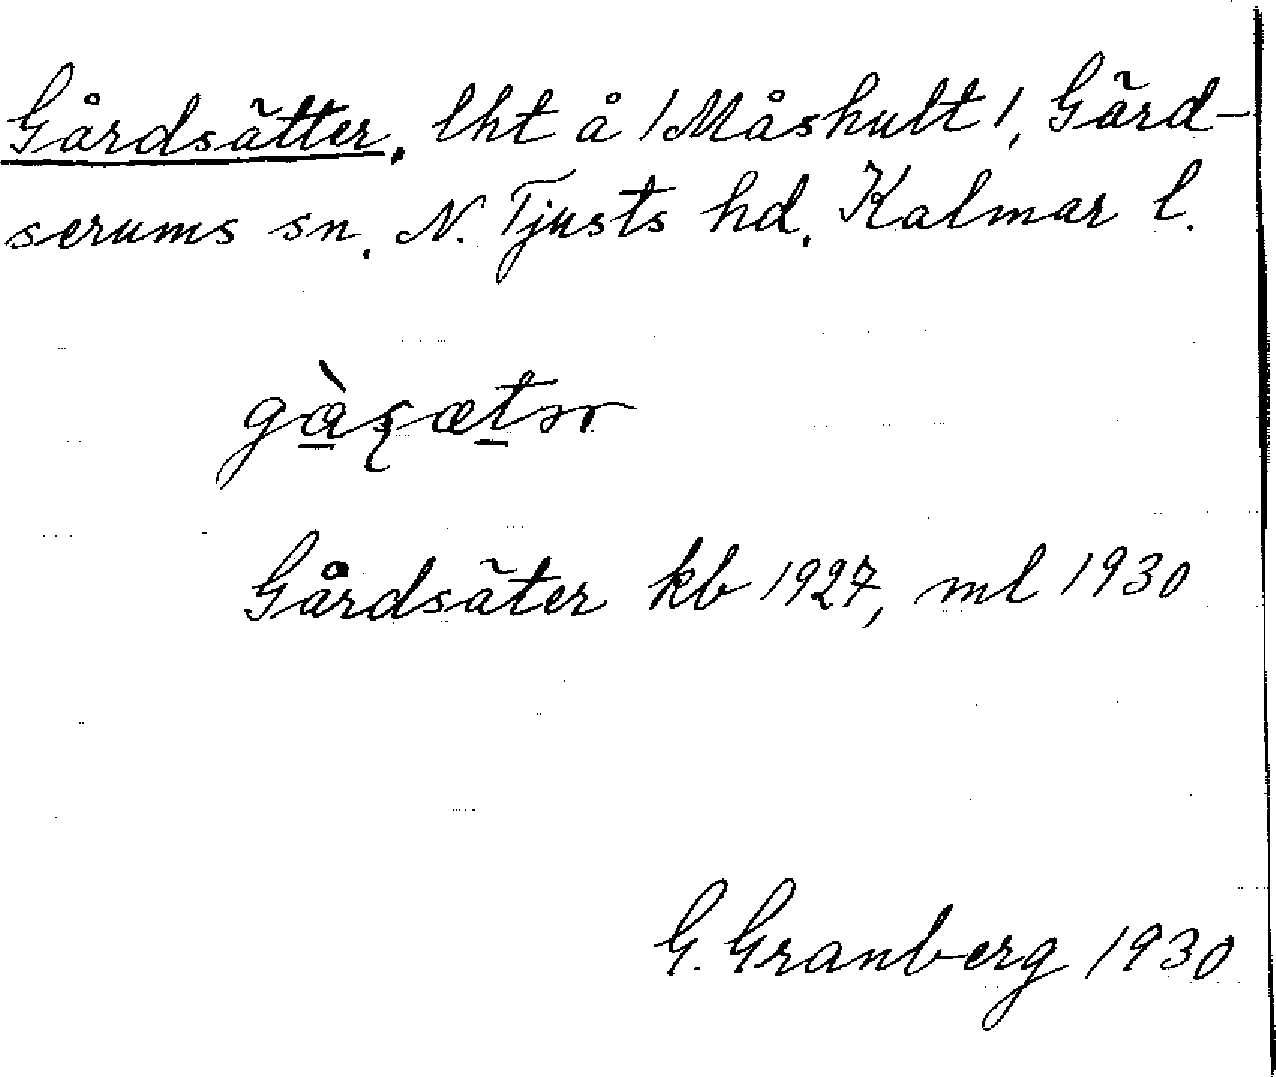 Gårdsätter, lht å /Måshult/, Gärd-
serums sn, N. Tjusts hd, Kalmar l.
Gårdsäter kb 1927, ml 1930
G. Granberg 1930